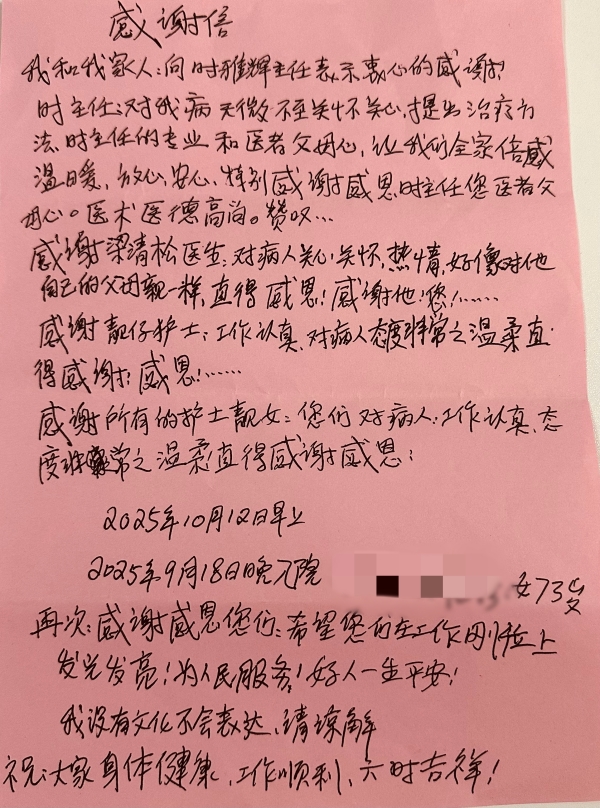 感谢信
我和我家人:向时雅辉主任表示衷心的感谢!
时主任:对我病无微不至关怀关心,提出治疗方
法,时主任的专业和医者父母心,让我们全家倍感
温暖,放心,安心,特别感谢感恩时主任您医者父
母心。医术医德高尚。赞叹…
感谢梁清松医生:对病人关心关怀,热情,好像对他
自己的父母親一样,直得感恩!感谢他:您!……
感谢靓仔护士:工作认真,对病人态度非常之温柔直
得感谢:感恩!……
感谢所有的护士靓女:您们对病人:工作认真,态
度非常之温柔直得感谢感恩:
2025年10月12日早上
2025年9月18日晚入院 女73岁
再次:感谢感恩您们:希望您们在工作刚位上
发光发亮!为人民服务!好人一生平安!
我没有文化不会表达,请谅解
祝:大家身体健康,工作顺利,六时吉祥!